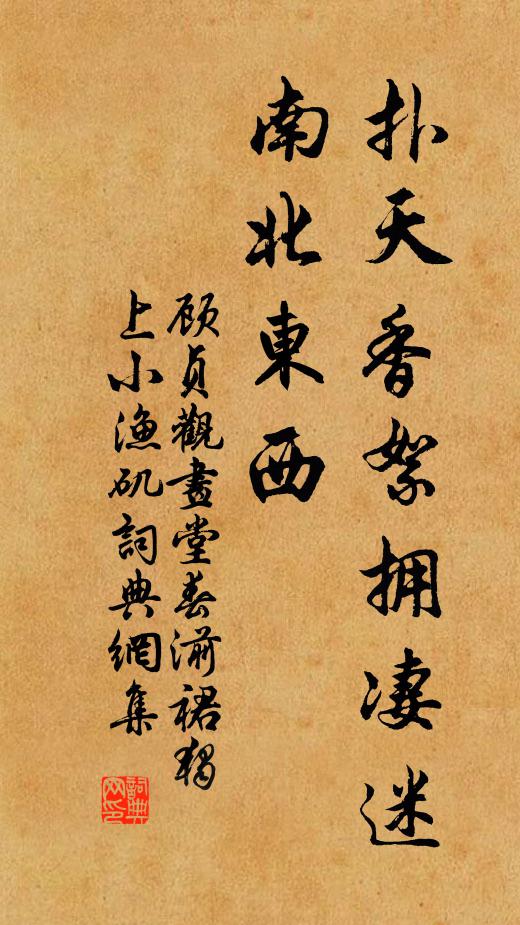 扑天香絮拥凄迷
南北東西
顾贞觀畫堂春湔裙獨
上小漁矶詞典網集
詞典
网印